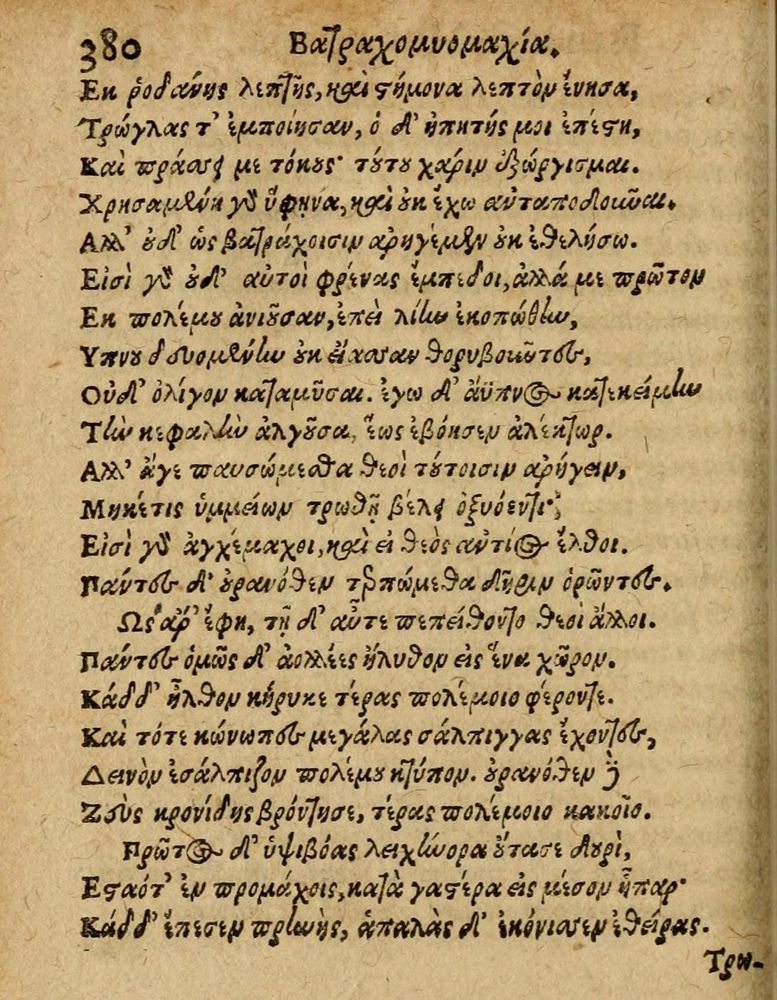 380 Βατραχομυομαχία.
Εκ ῥοδάνης λεπτῆς, καὶ στήμονα λεπτὸν ἔνησα,
Τρώγλας τ' ἐμποίησαν, ὁ δ' ἠπητής μοι ἐπέστη,
Καὶ πράσσει με τόκους· τούτου χάριν ἐξώργισμαι.
Χρησαμένη γὰρ ὕφηνα, καὶ οὐκ ἔχω ἀνταποδοῦναι.
Ἀλλ' οὐδ' ὡς βατράχοισιν ἀρηγέμεν οὐκ ἐθελήσω.
Εἰσὶ γὰρ οὐδ' αὐτοὶ φρένας ἔμπεδοι, ἀλλά με πρῶτον
Εκ πολέμου ἀνιοῦσαν, ἐπεὶ λίην ἐκοπώθην,
Υπνου δευομένην οὐκ εἴασαν θορυβοῦντες,
Οὐδ' ὀλίγον καταμῦσαι. ἐγω δ' ἄϋπνος κατεκείμην
Τὴν κεφαλὴν ἀλγοῦσα, ἕως ἐβόησεν ἀλέκτωρ.
Ἀλλ' ἄγε παυσώμεσθα θεοὶ τούτοισιν ἀρήγειν,
Μηκέτις ὑμμείων τρωθῇ βέλει ὀξυόεντι·
Εἰσὶ γὰρ ἀγχέμαχοι, καὶ εἰ θεὸς ἀντίος ἔλθοι.
Πάντες δ' οὐρανόθεν τερπώμεθα δῆριν ὁρῶντες.
Ὣς ἄρ' ἔφη, τῇ δ' αὖτε πεπείθοντο θεοὶ ἄλλοι.
Πάντες ὁμῶς δ' ἀολλέες ἤλυθον εἰς ἕνα χῶρον.
Κάδδ' ἦλθον κήρυκε τέρας πολέμοιο φέροντε.
Καὶ τότε κώνωπες μεγάλας σάλπιγγας ἔχοντες,
Δεινὸν ἐσάλπιζον πολέμου κτύπον. οὐρανόθεν δὲ
Ζεὺς κρονίδης βρόντησε, τέρας πολέμοιο κακοῖο.
Πρῶτος δ' ὑψιβόας λειχήνορα οὔτασε δουρὶ,
Εσταότ' ἐν προμάχοις, κατὰ γαστέρα εἰς μέσον ἧπαρ·
Κάδδ' ἔπεσεν πρηνὴς, ἁπαλὰς δ' ἐκόνισεν ἐθείρας.
Τρω-